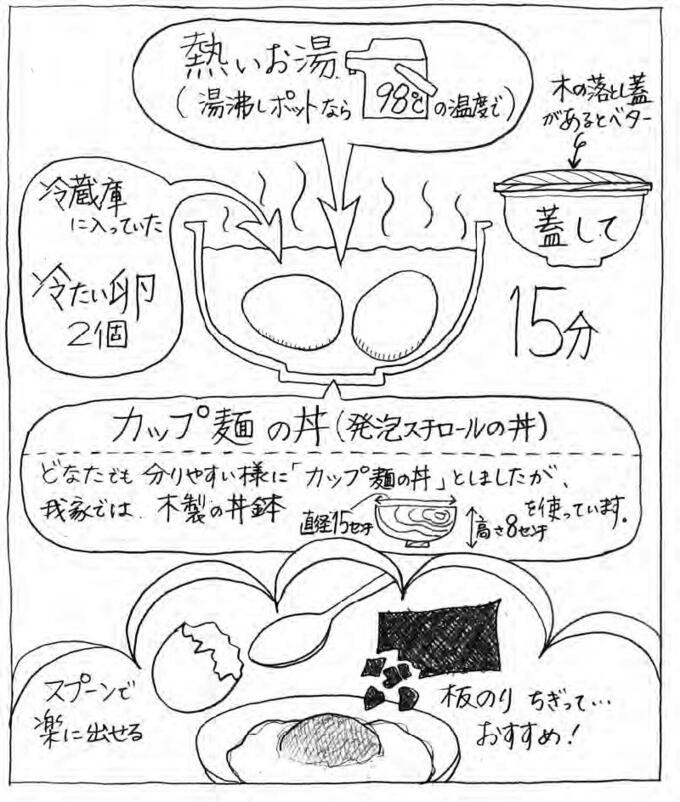 熱いお湯
(湯沸しポットなら 98℃の温度で)
木の落とし蓋
があるとベター
冷蔵庫
に入っていた
冷たい卵
2個
蓋して
15分
カップ麺の丼(発泡スチロールの丼)
どなたでも分りやすい様に「カップ麺の丼」としましたが、
我家では 木製の丼鉢 直径15センチ 高さ8センチ を使っています。
スプーンで
楽に出せる
板のり ちぎって…
おすすめ!